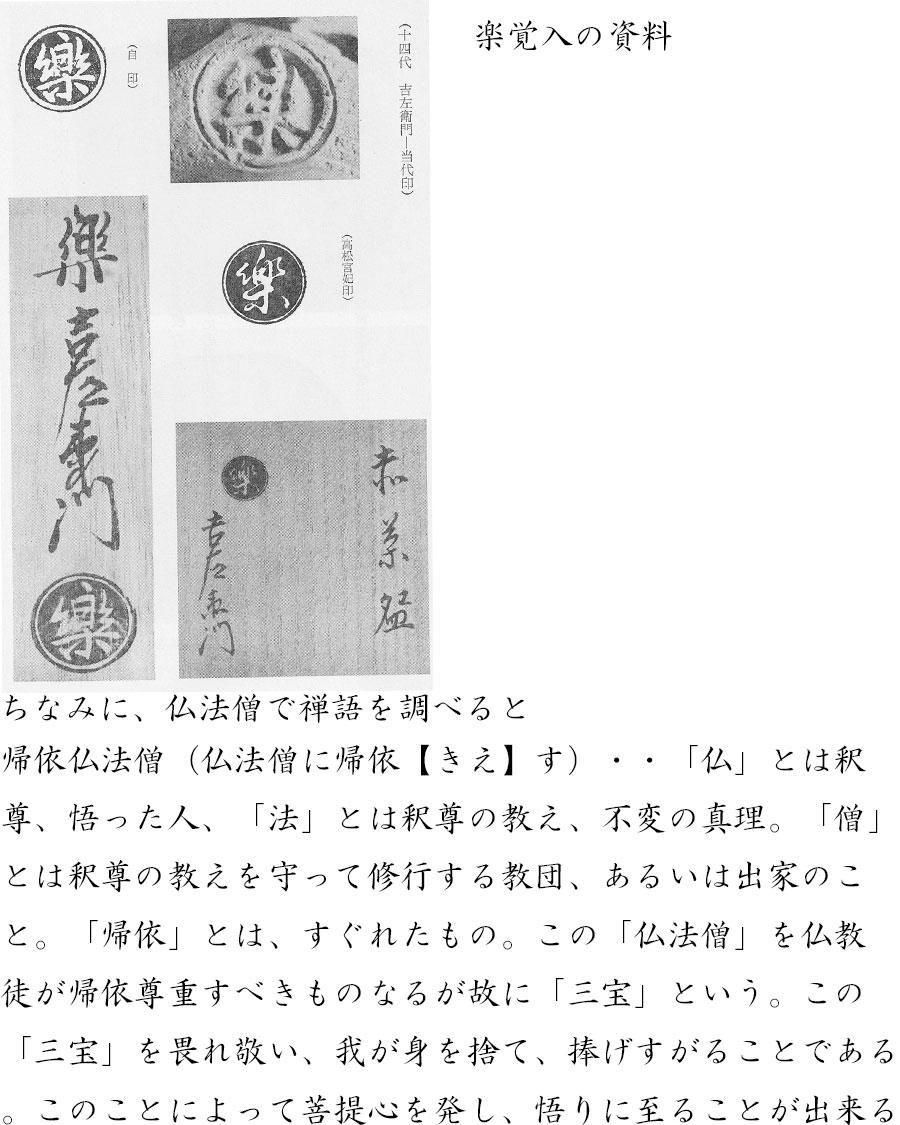 楽覚入の資料
(十四代 吉左衛門—当代印)
樂
(自印)
樂
(高松宮妃印)
樂
樂吉左衛門
樂
赤茶碗
樂
吉左衛門
ちなみに、仏法僧で禅語を調べると
帰依仏法僧（仏法僧に帰依【きえ】す）・・「仏」とは釈
尊、悟った人、「法」とは釈尊の教え、不変の真理。「僧」
とは釈尊の教えを守って修行する教団、あるいは出家のこ
と。「帰依」とは、すぐれたもの。この「仏法僧」を仏教
徒が帰依尊重すべきものなるが故に「三宝」という。この
「三宝」を畏れ敬い、我が身を捨て、捧げすがることである
。このことによって菩提心を発し、悟りに至ることが出来る